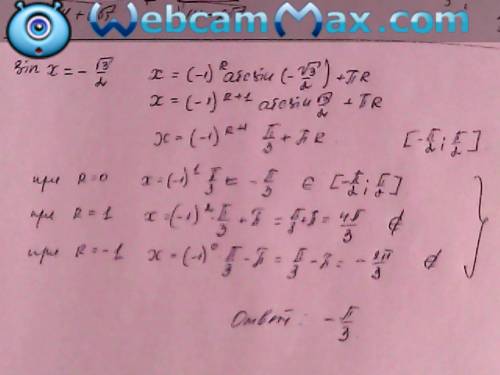 WebcamMax.com
sin x = - √3/2 x = (-1)^R arcsin (- √3/2) + πR
x = (-1)^R+1 arcsin √3/2 + πR
x = (-1)^R+1 π/3 + πR [-π/2; π/2]
при R=0 x = (-1)^1 π/3 = - π/3 ∈ [-π/2; π/2]
при R=1 x = (-1)^2 π/3 + π = π/3 + π = 4π/3 ∉
при R=-1 x = (-1)^0 π/3 - π = π/3 - π = - 2π/3 ∉
Ответ: - π/3